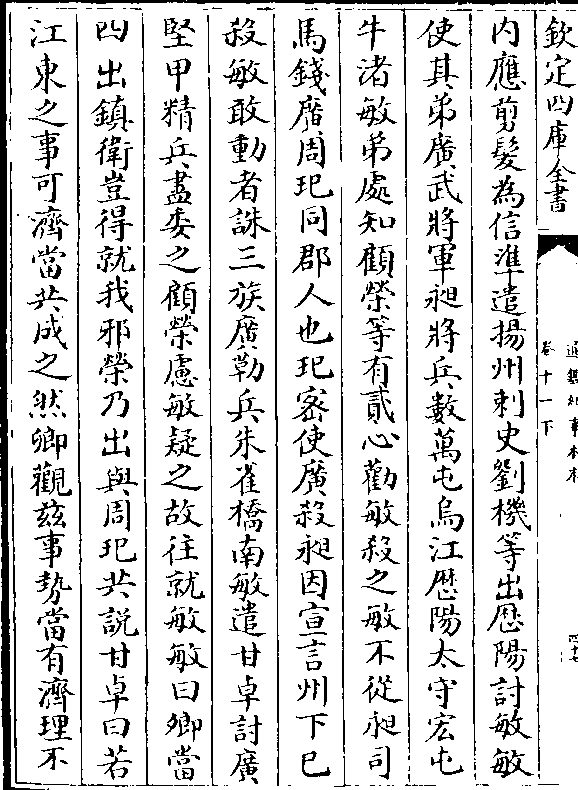 欽定四庫全書
通鑑紀事本末
卷十一下
四十七
內應剪髮為信準遣揚州刺史劉機等出歷陽討敏敏
使其弟廣武將軍昶將兵數萬屯烏江歷陽太守宏屯
牛渚敏弟處知顧榮等有貳心勸敏殺之敏不從昶司
馬錢廣周玘同郡人也玘密使廣殺昶因宣言州下已
殺敏敢動者誅三族廣勒兵朱雀橋南敏遣甘卓討廣
堅甲精兵盡委之顧榮慮敏疑之故往就敏敏曰卿當
四出鎮衛豈得就我邪榮乃出與周玘共說甘卓曰若
江東之事可濟當共成之然卿觀茲事勢當有濟理不